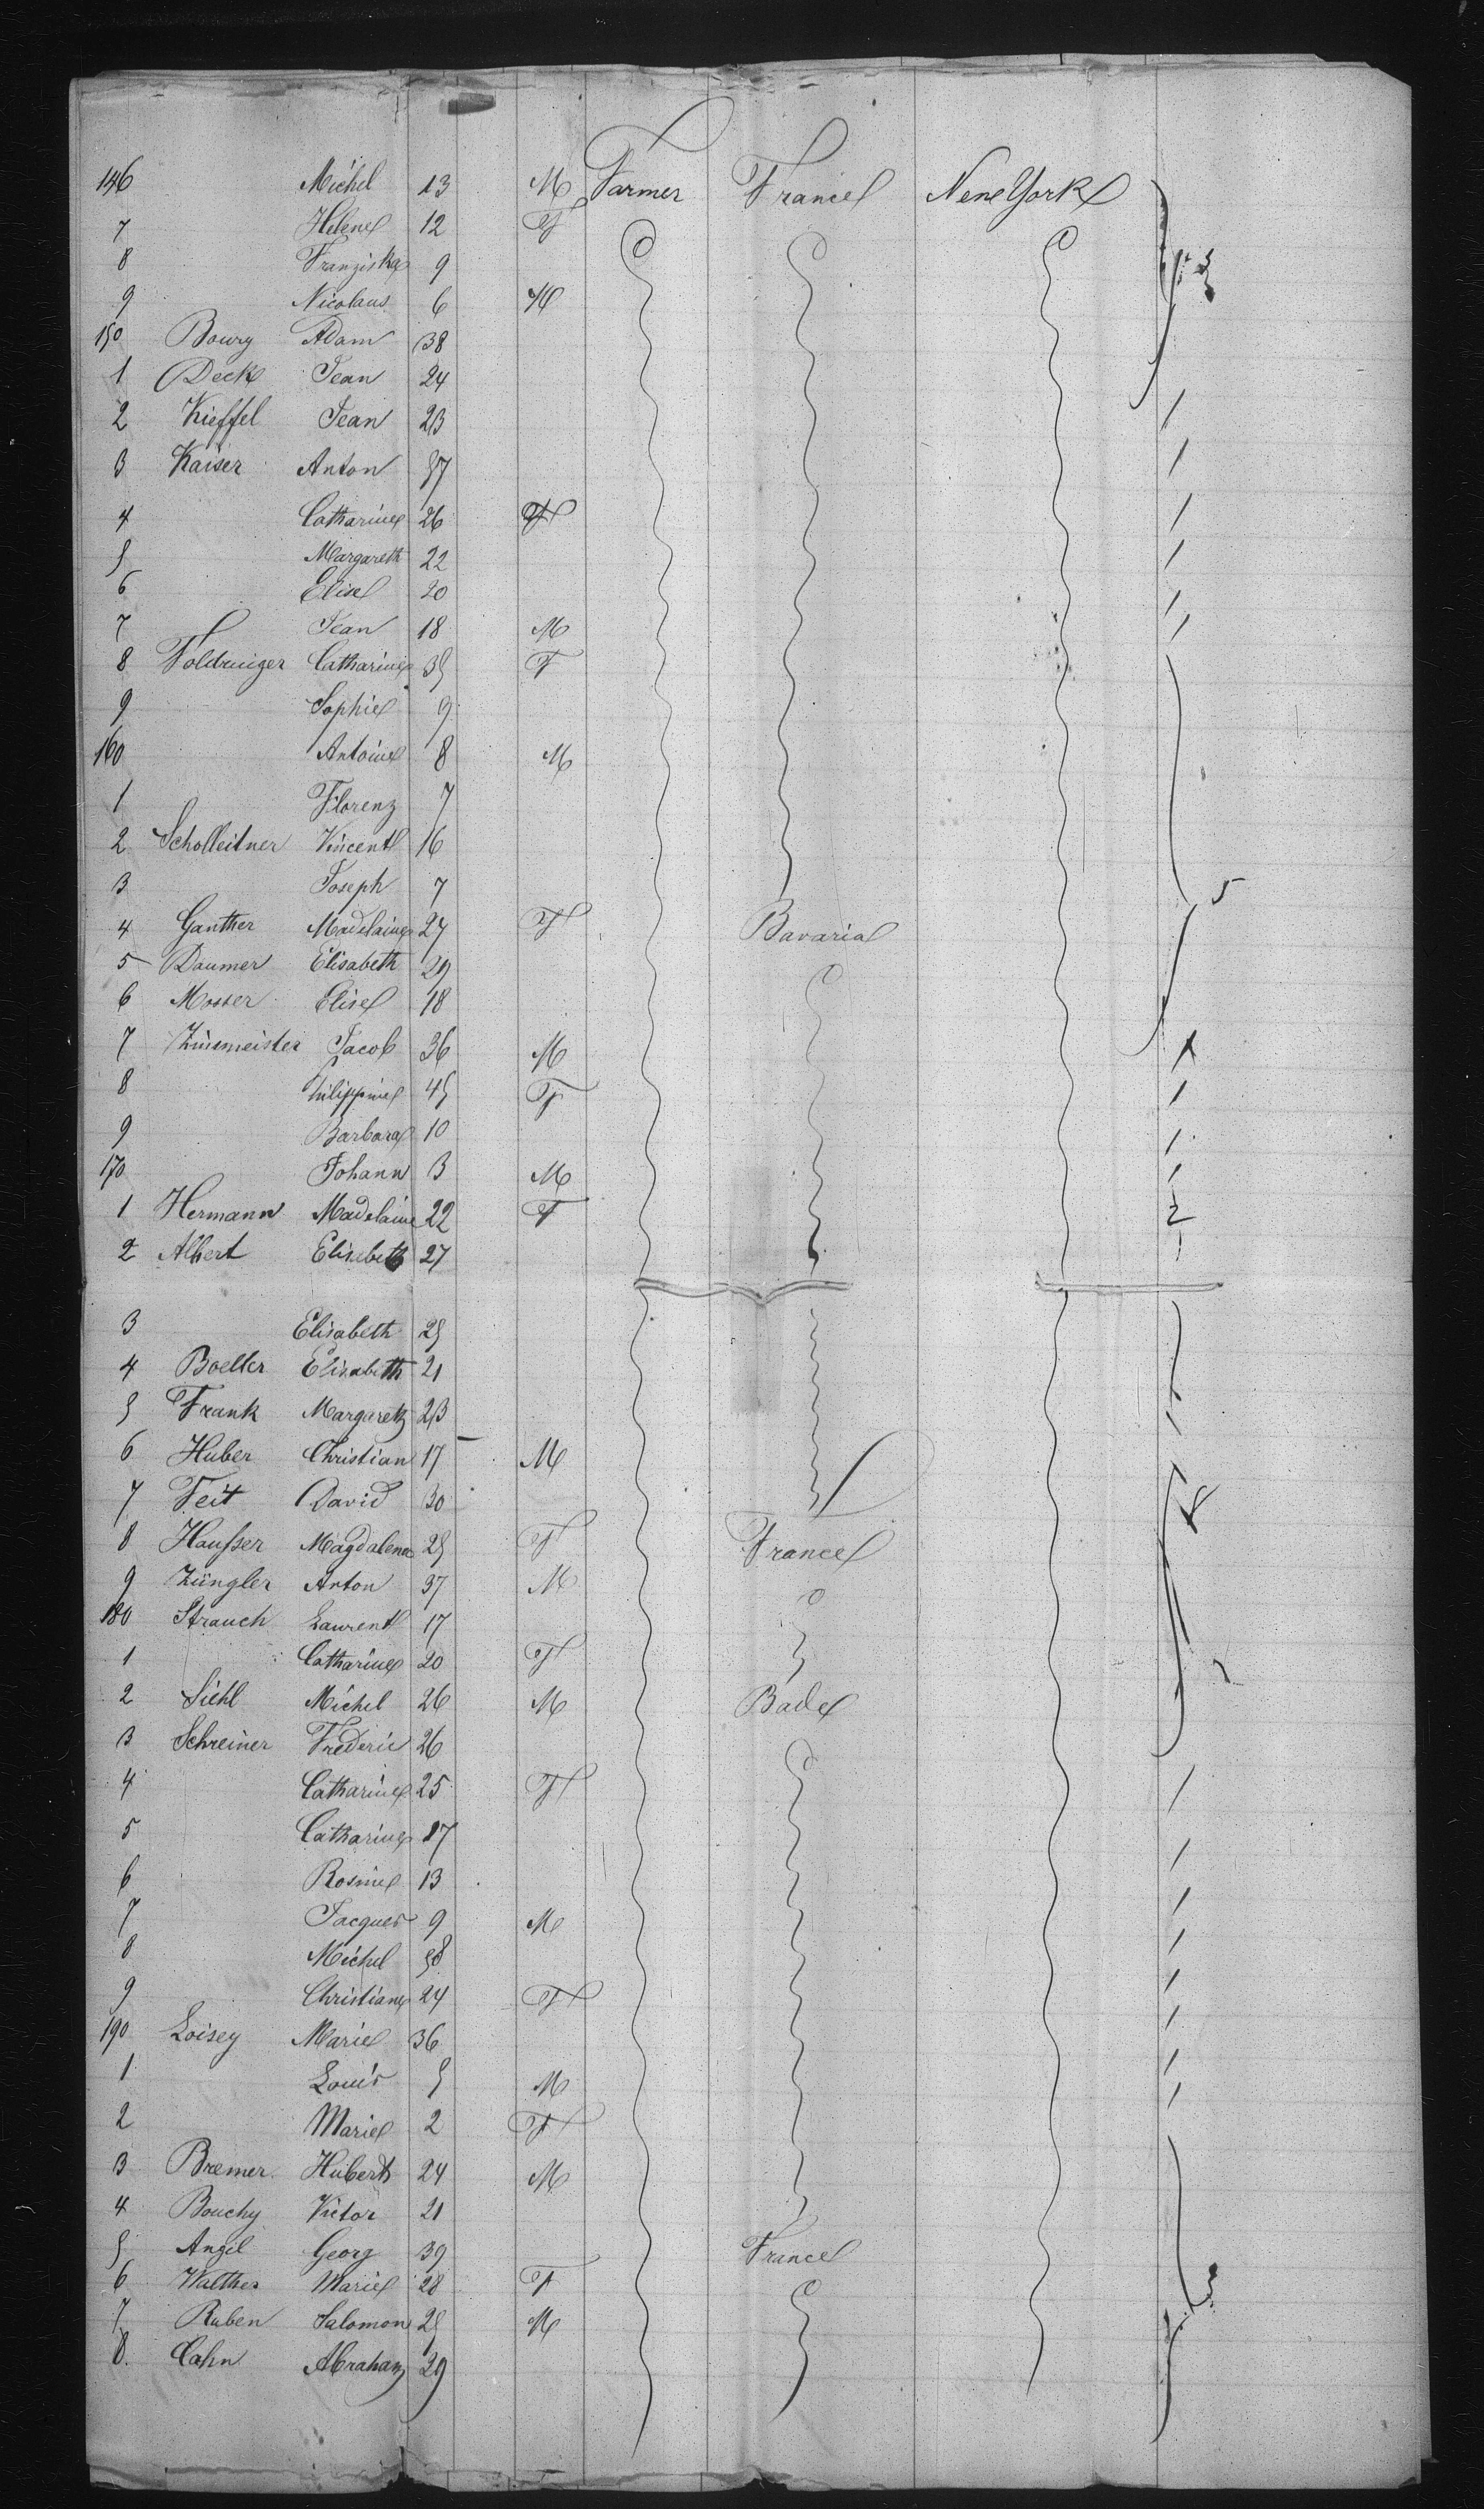 146 Michel 13 M Farmer France New York
7 Helene 12 F
8 Franziska 9
9 Nicolaus 6 M
150 Boury Adam 38
1 Deck Jean 24
2 Kieffel Jean 23
3 Kaiser Anton 57
4 Catharine 26 F
5 Margareth 22
6 Elise 20
7 Jean 18 M
8 Catharine 35 F
9 Sophie 9
160 Antoine 8 M
1 Florenz 7
2 Scholleitner Vincent 16
3 Joseph 7
4 Ganther Madelaine 27 F Bavaria
5 Daumer Elisabeth 29
6 Mosser Elise 18
7 Zinsmeister Jacob 36 M
8 Philippine 45 F
9 Barbara 10
170 Johann 3 M
1 Hermann Madelaine 22 F
2 Albert Elisabeth 27
3 Elisabeth 25
4 Boeller Elisabeth 21
5 Frank Margareth 23
6 Huber Christian 17 M
7 Feit David 30
8 Hausser Magdalena 25 F France
9 Züngler Anton 37 M
180 Strauch Laurent 17
1 Catharine 20 F
2 Siehl Michel 26 M Bade
3 Schreiner Frederic 26
4 Catharine 25 F
5 Catharine 17
6 Rosine 13
7 Jacques 9 M
8 Michel 58
9 Christiane 24 F
190 Loisey Marie 36
1 Louis 5 M
2 Marie 2 F
3 Bremer Hubert 24 M
4 Bouchy Victor 21
5 Angel Georg 39 France
6 Walther Marie 28 F
7 Ruben Salomon 25 M
8. Cahn Abraham 29